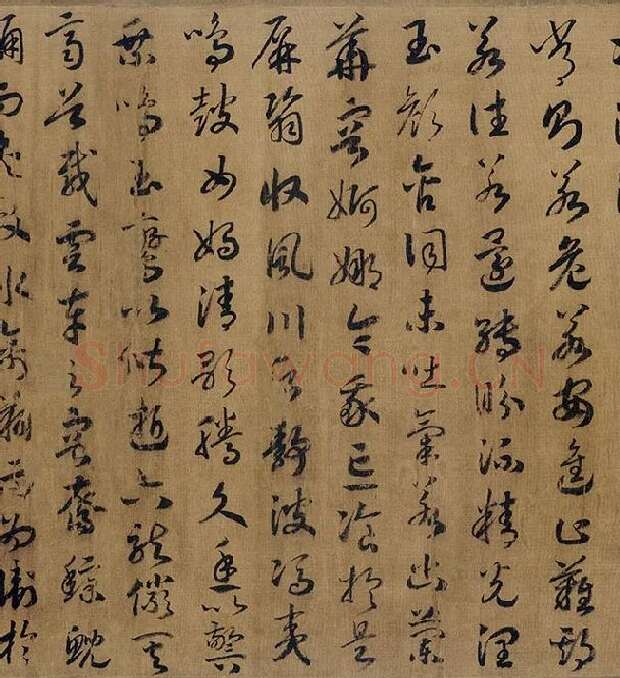 常則若危若安進止難期
若往若還轉眄流精光潤
玉顏含詞未吐氣若幽蘭
華容婀娜令我忘飡於是
屏翳收風川后靜波馮夷
鳴鼓女媧清歌騰文魚以警
乘鳴玉鸞以偕逝六龍儼其
齊首載雲車之容裔鯨鯢
踊而夾轂水禽翔而為衛於
Shufawang.CN